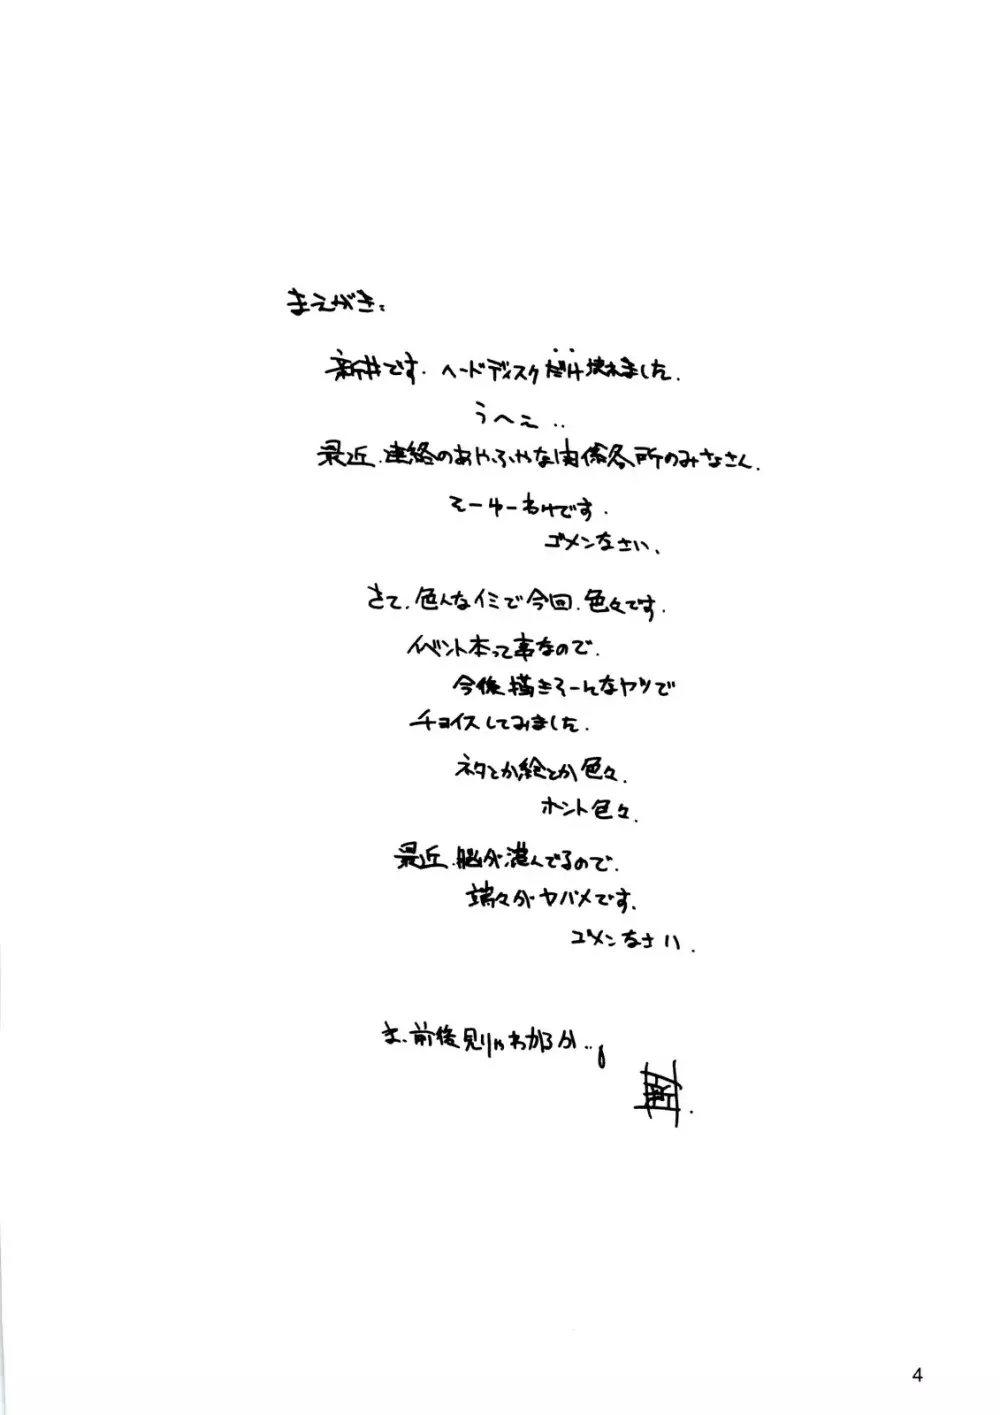 まえがき。
新井です. ハードディスクだけ壊れました.
うへえ..
最近.連絡のあやふやな関係各所のみなさん.
そーゆーわけです.
ゴメンなさい、
さて.色んなイミで今回.色々です.
イベント本って事なので.
今後描きそーんなヤツで
チョイスしてみました.
ネタとか絵とか色々.
ホント色々.
最近.脳が混んでるので.
端々がヤバメです.
ゴメンなさい.
ま、前後見りゃわかるか..。
4